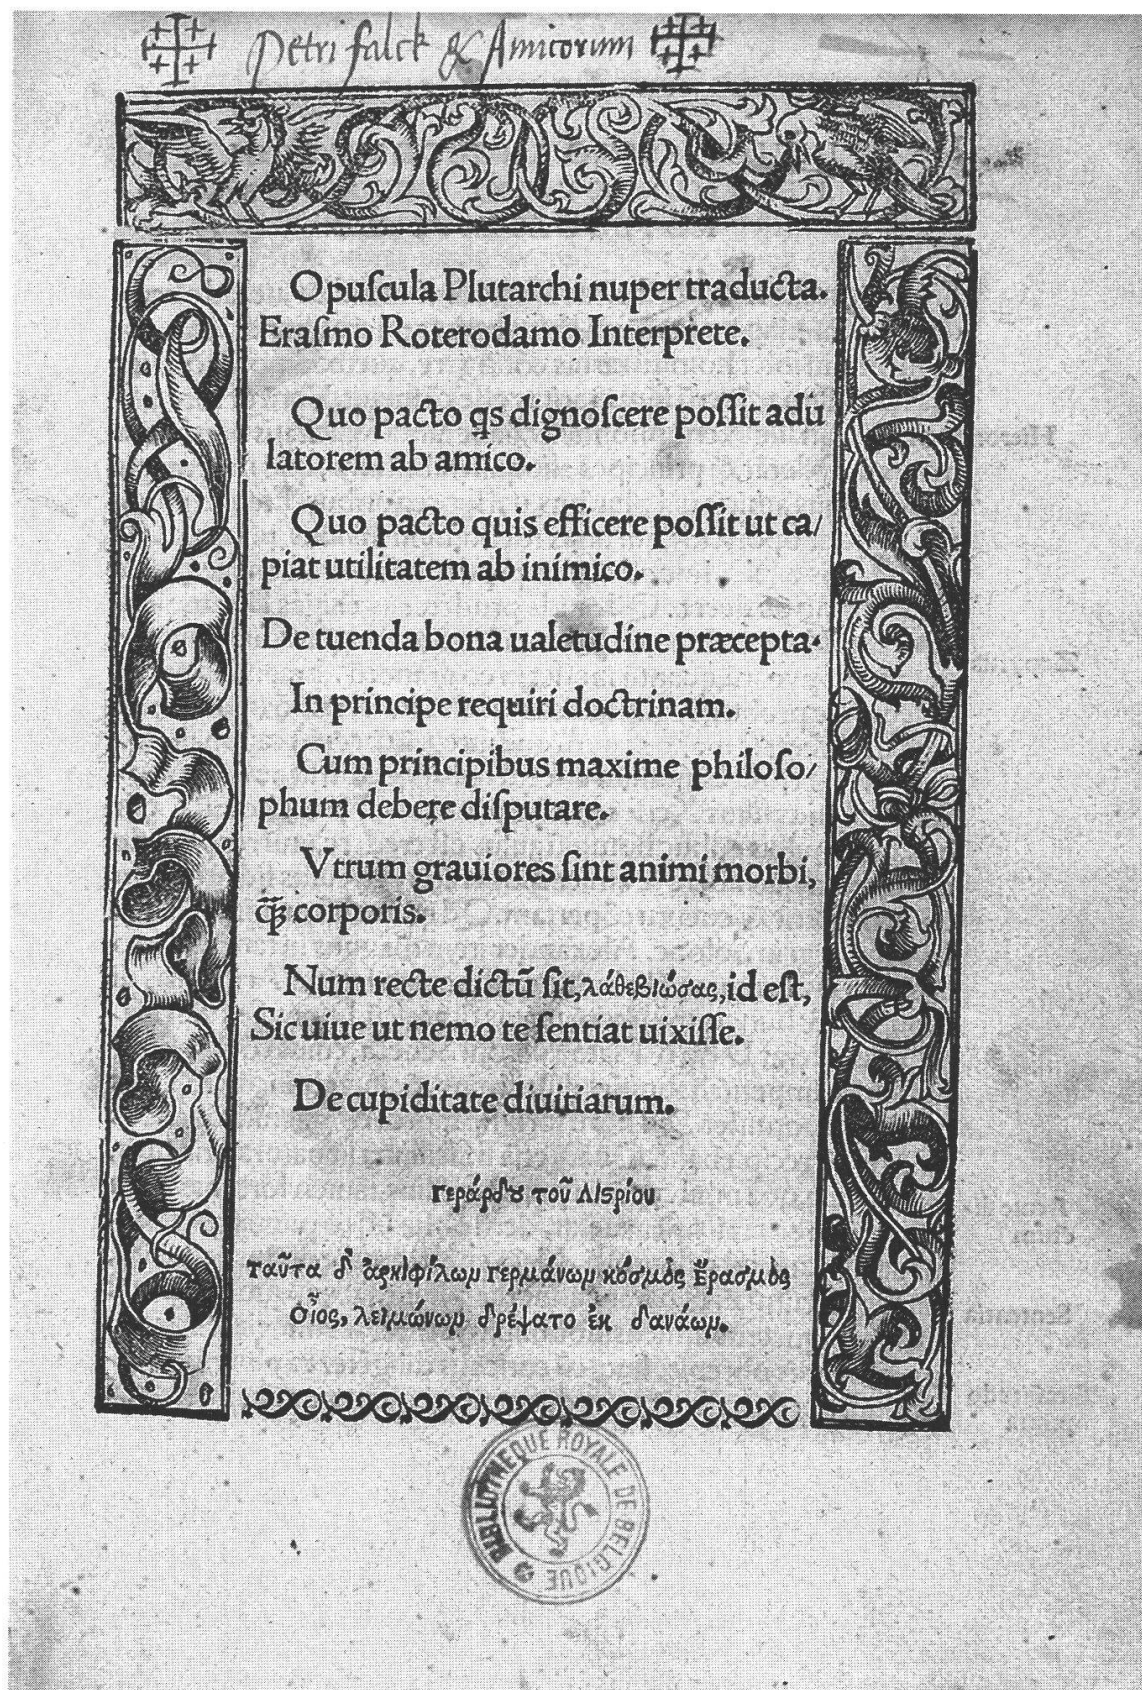 Petri Falck & Amicorum
Opuſcula Plutarchi nuper traducta.
Eraſmo Roterodamo Interprete.
Quo pacto qs dignoſcere poſſit adū
latorem ab amico.
Quo pacto quis efficere poſſit ut ca/
piat utilitatem ab inimico.
De tuenda bona ualetudine præcepta.
In principe requiri doctrinam.
Cum principibus maxime philoſo/
phum debere diſputare.
Vtrum grauiores ſint animi morbi,
ꝙ̃ corporis.
Num recte dictū ſit, λάθεβιώσας, id eſt,
Sic uiue ut nemo te ſentiat uixiſſe.
De cupiditate diuitiarum.
γεράρδȣ τοῦ λιϛρίου
ταῦτα δ' γερμάνων κόσμος ἔρασμὸς
λειμώνων δρέψατο ἐκ δανάων.
BIBLIOTHEQUE ROYALE DE BELGIQUE